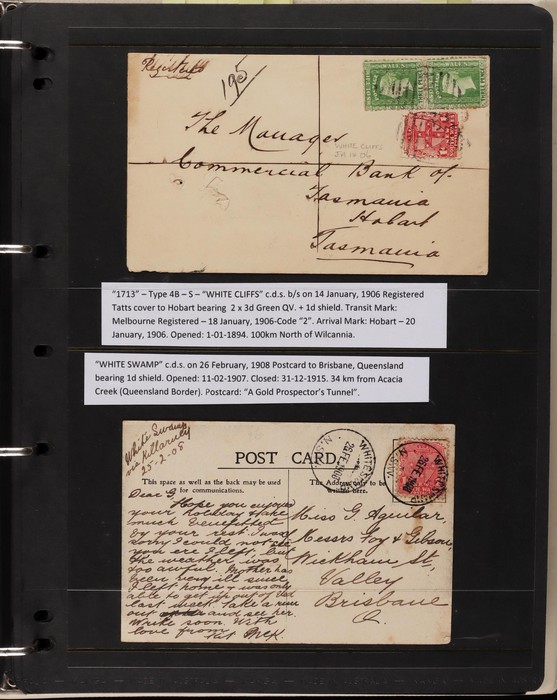 Registered
195
WHITE CLIFFS
JA 14 06
The Manager
Commercial Bank of
Tasmania
Hobart
Tasmania
"1713" – Type 4B – S – "WHITE CLIFFS" c.d.s. b/s on 14 January, 1906 Registered
Tatts cover to Hobart bearing 2 x 3d Green QV. + 1d shield. Transit Mark:
Melbourne Registered – 18 January, 1906-Code "2". Arrival Mark: Hobart – 20
January, 1906. Opened: 1-01-1894. 100km North of Wilcannia.
"WHITE SWAMP" c.d.s. on 26 February, 1908 Postcard to Brisbane, Queensland
bearing 1d shield. Opened: 11-02-1907. Closed: 31-12-1915. 34 km from Acacia
Creek (Queensland Border). Postcard: "A Gold Prospector's Tunnel".
White Swamp
via Killarney
25-2-08
POST CARD.
This space as well as the back may be used
for communications.
The Address only to be
written here.
Dear G
Hope you enjoyed
your holiday &
much benefitted
by your rest. I was
sorry I could not see
you ere I left, but
the weather was
too awful. Mother has
been very ill since
I left home & was only
able to get up out of bed
last week. Take a run
out and see her.
Write soon. With
love from
Miss G. Aguilar,
Messrs Foy & Gibson,
Wickham St,
Valley
Brisbane
Q.